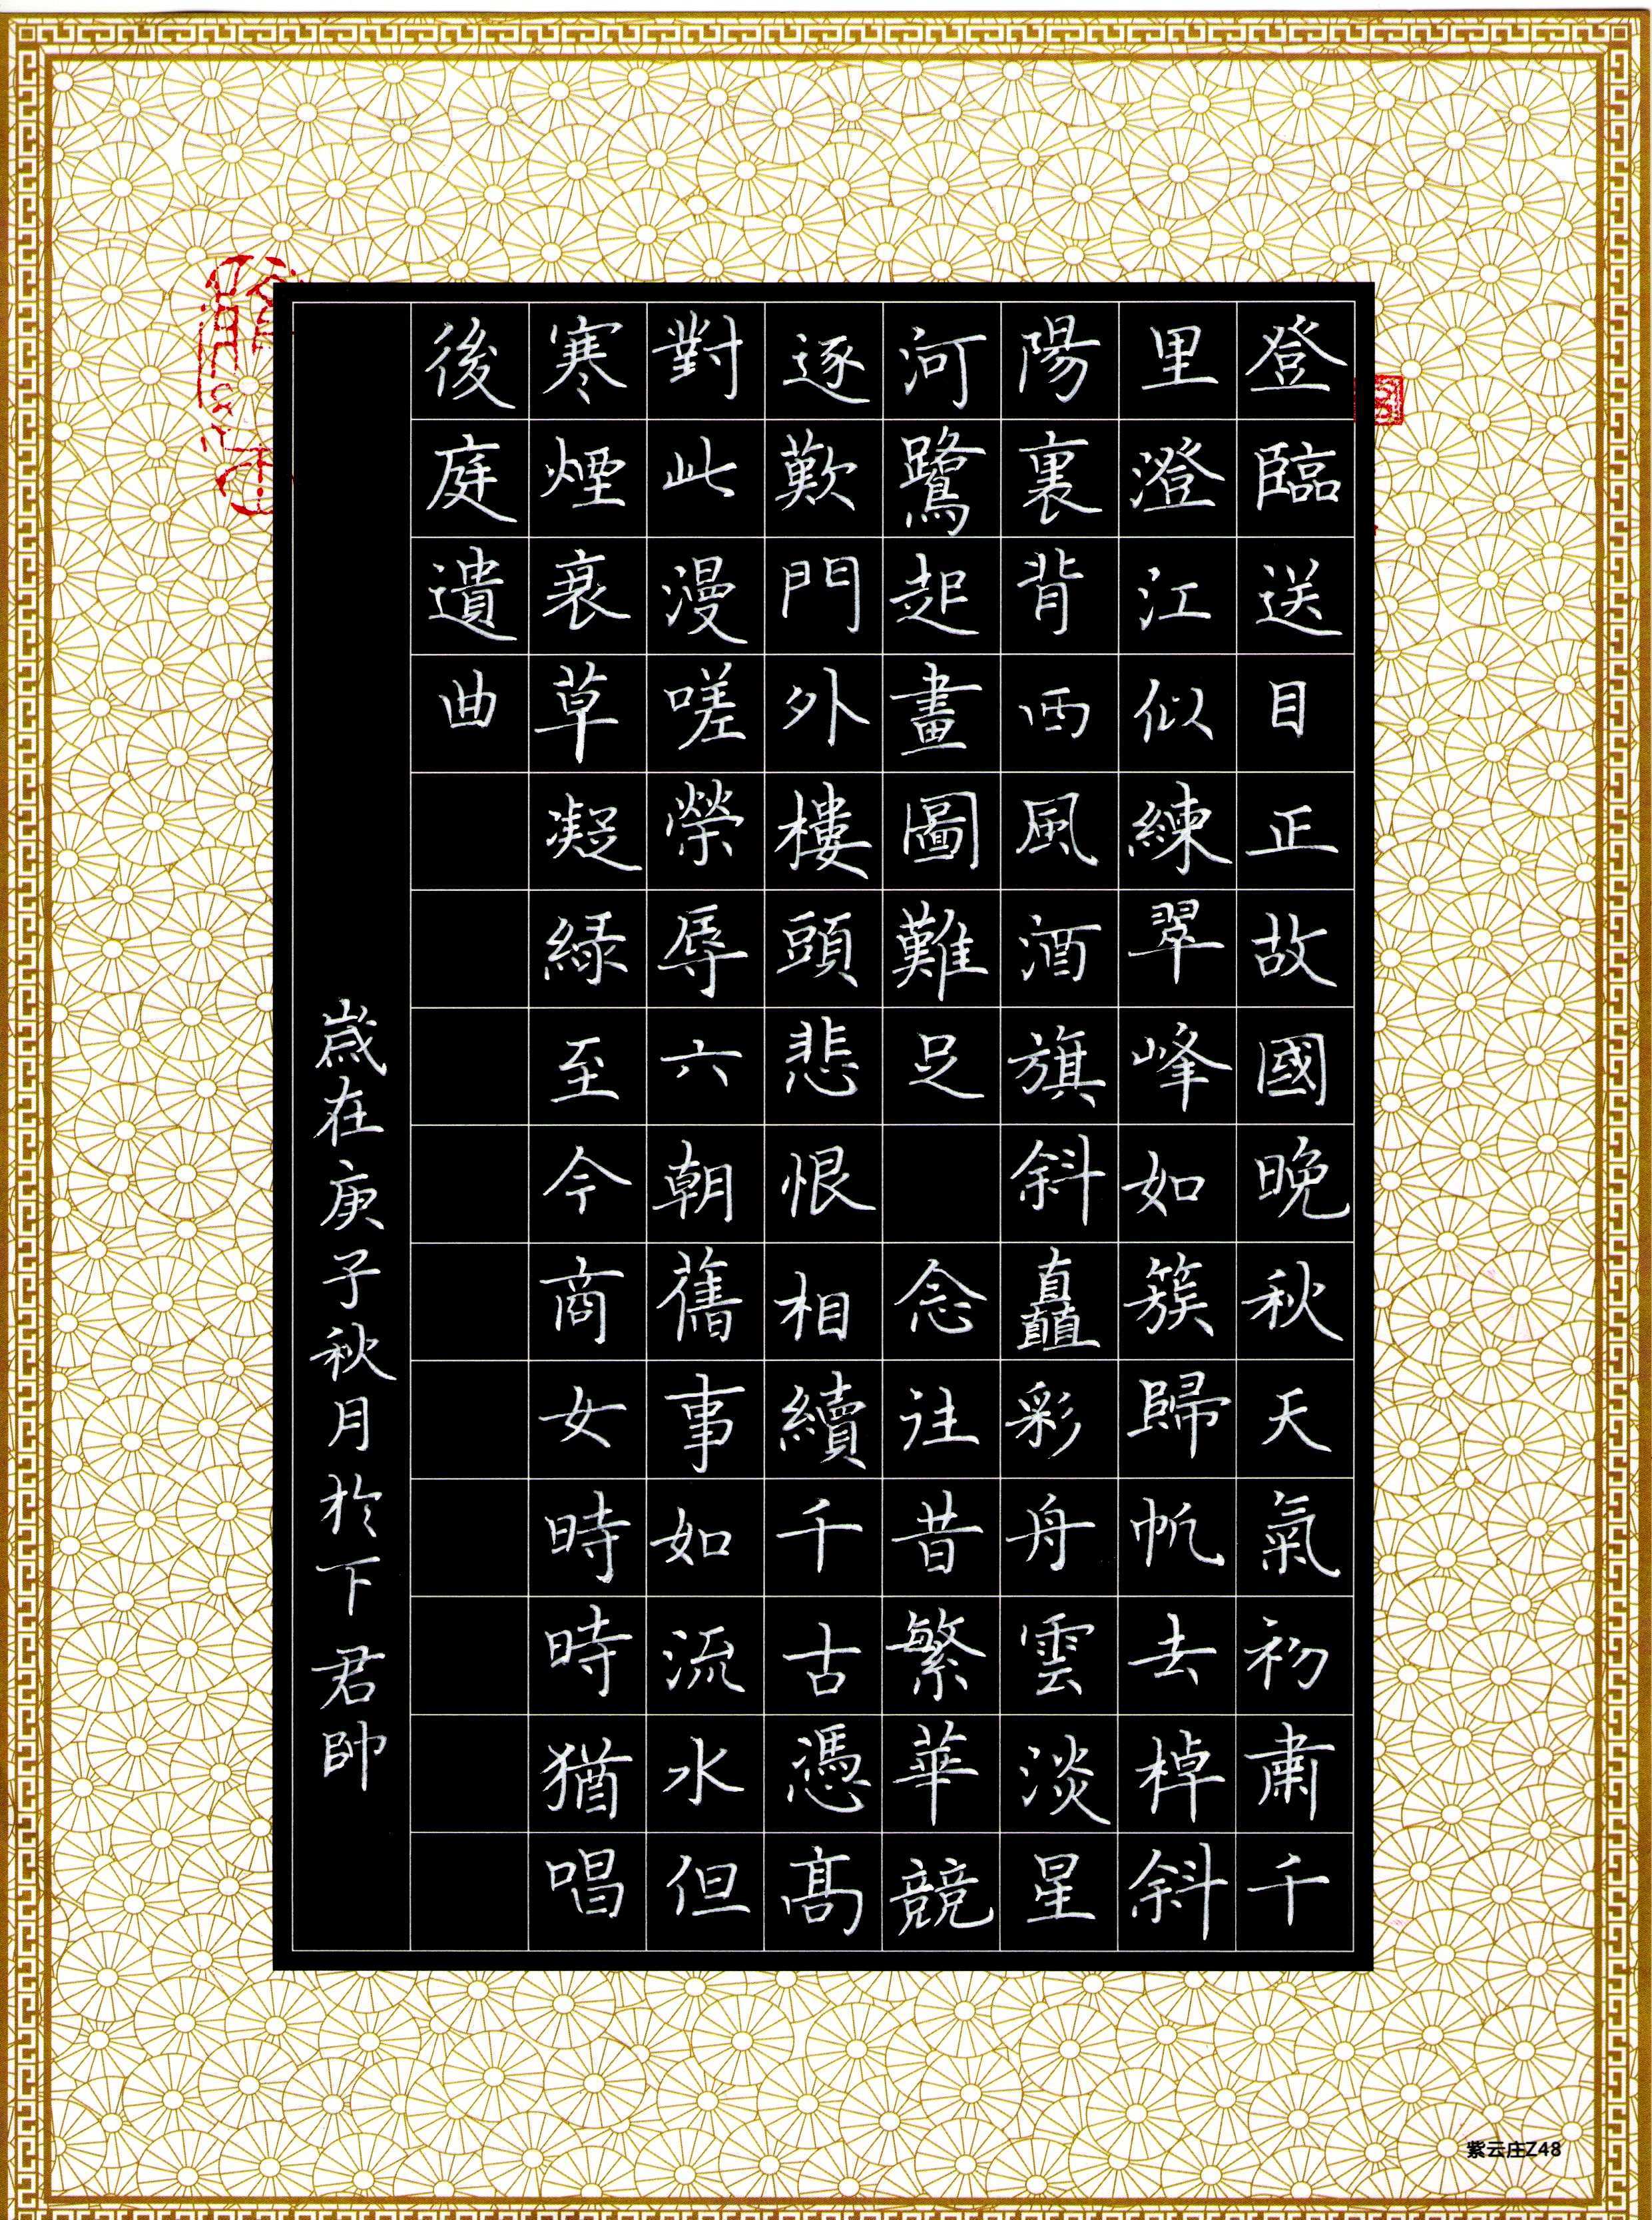 登臨送目正故國晚秋天氣初肅千
里澄江似練翠峰如簇歸帆去棹斜
陽裏背西風酒旗斜矗彩舟雲淡星
河鷺起畫圖難足　念往昔繁華競
逐歎門外樓頭悲恨相續千古憑高
對此漫嗟榮辱六朝舊事如流水但
寒煙衰草凝綠至今商女時時猶唱
後庭遺曲
歲在庚子秋月於下君帥
紫云庄Z48